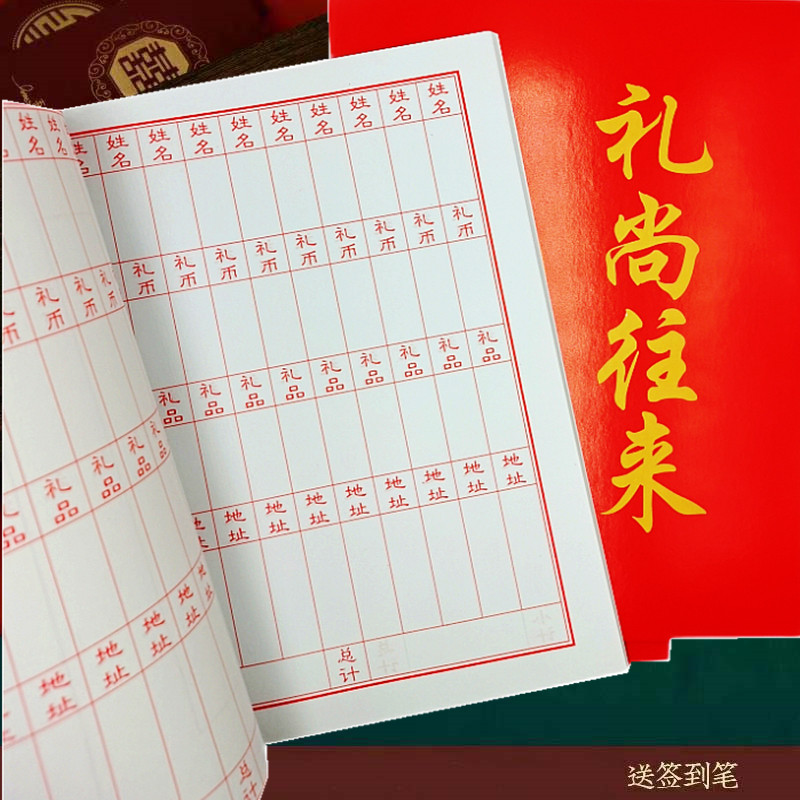 姓名 姓名
礼币 礼币 礼币
礼品 礼品 礼品 礼品 礼品
地址 地址 地址 地址 地址
总计
姓名 姓名 姓名 姓名 姓名 姓名 姓名 姓名 姓名 姓名
礼币 礼币 礼币 礼币 礼币 礼币 礼币 礼币 礼币
礼品 礼品 礼品 礼品 礼品 礼品 礼品 礼品 礼品
地址 地址 地址 地址 地址 地址 地址 地址 地址
总计
礼尚往来
送签到笔